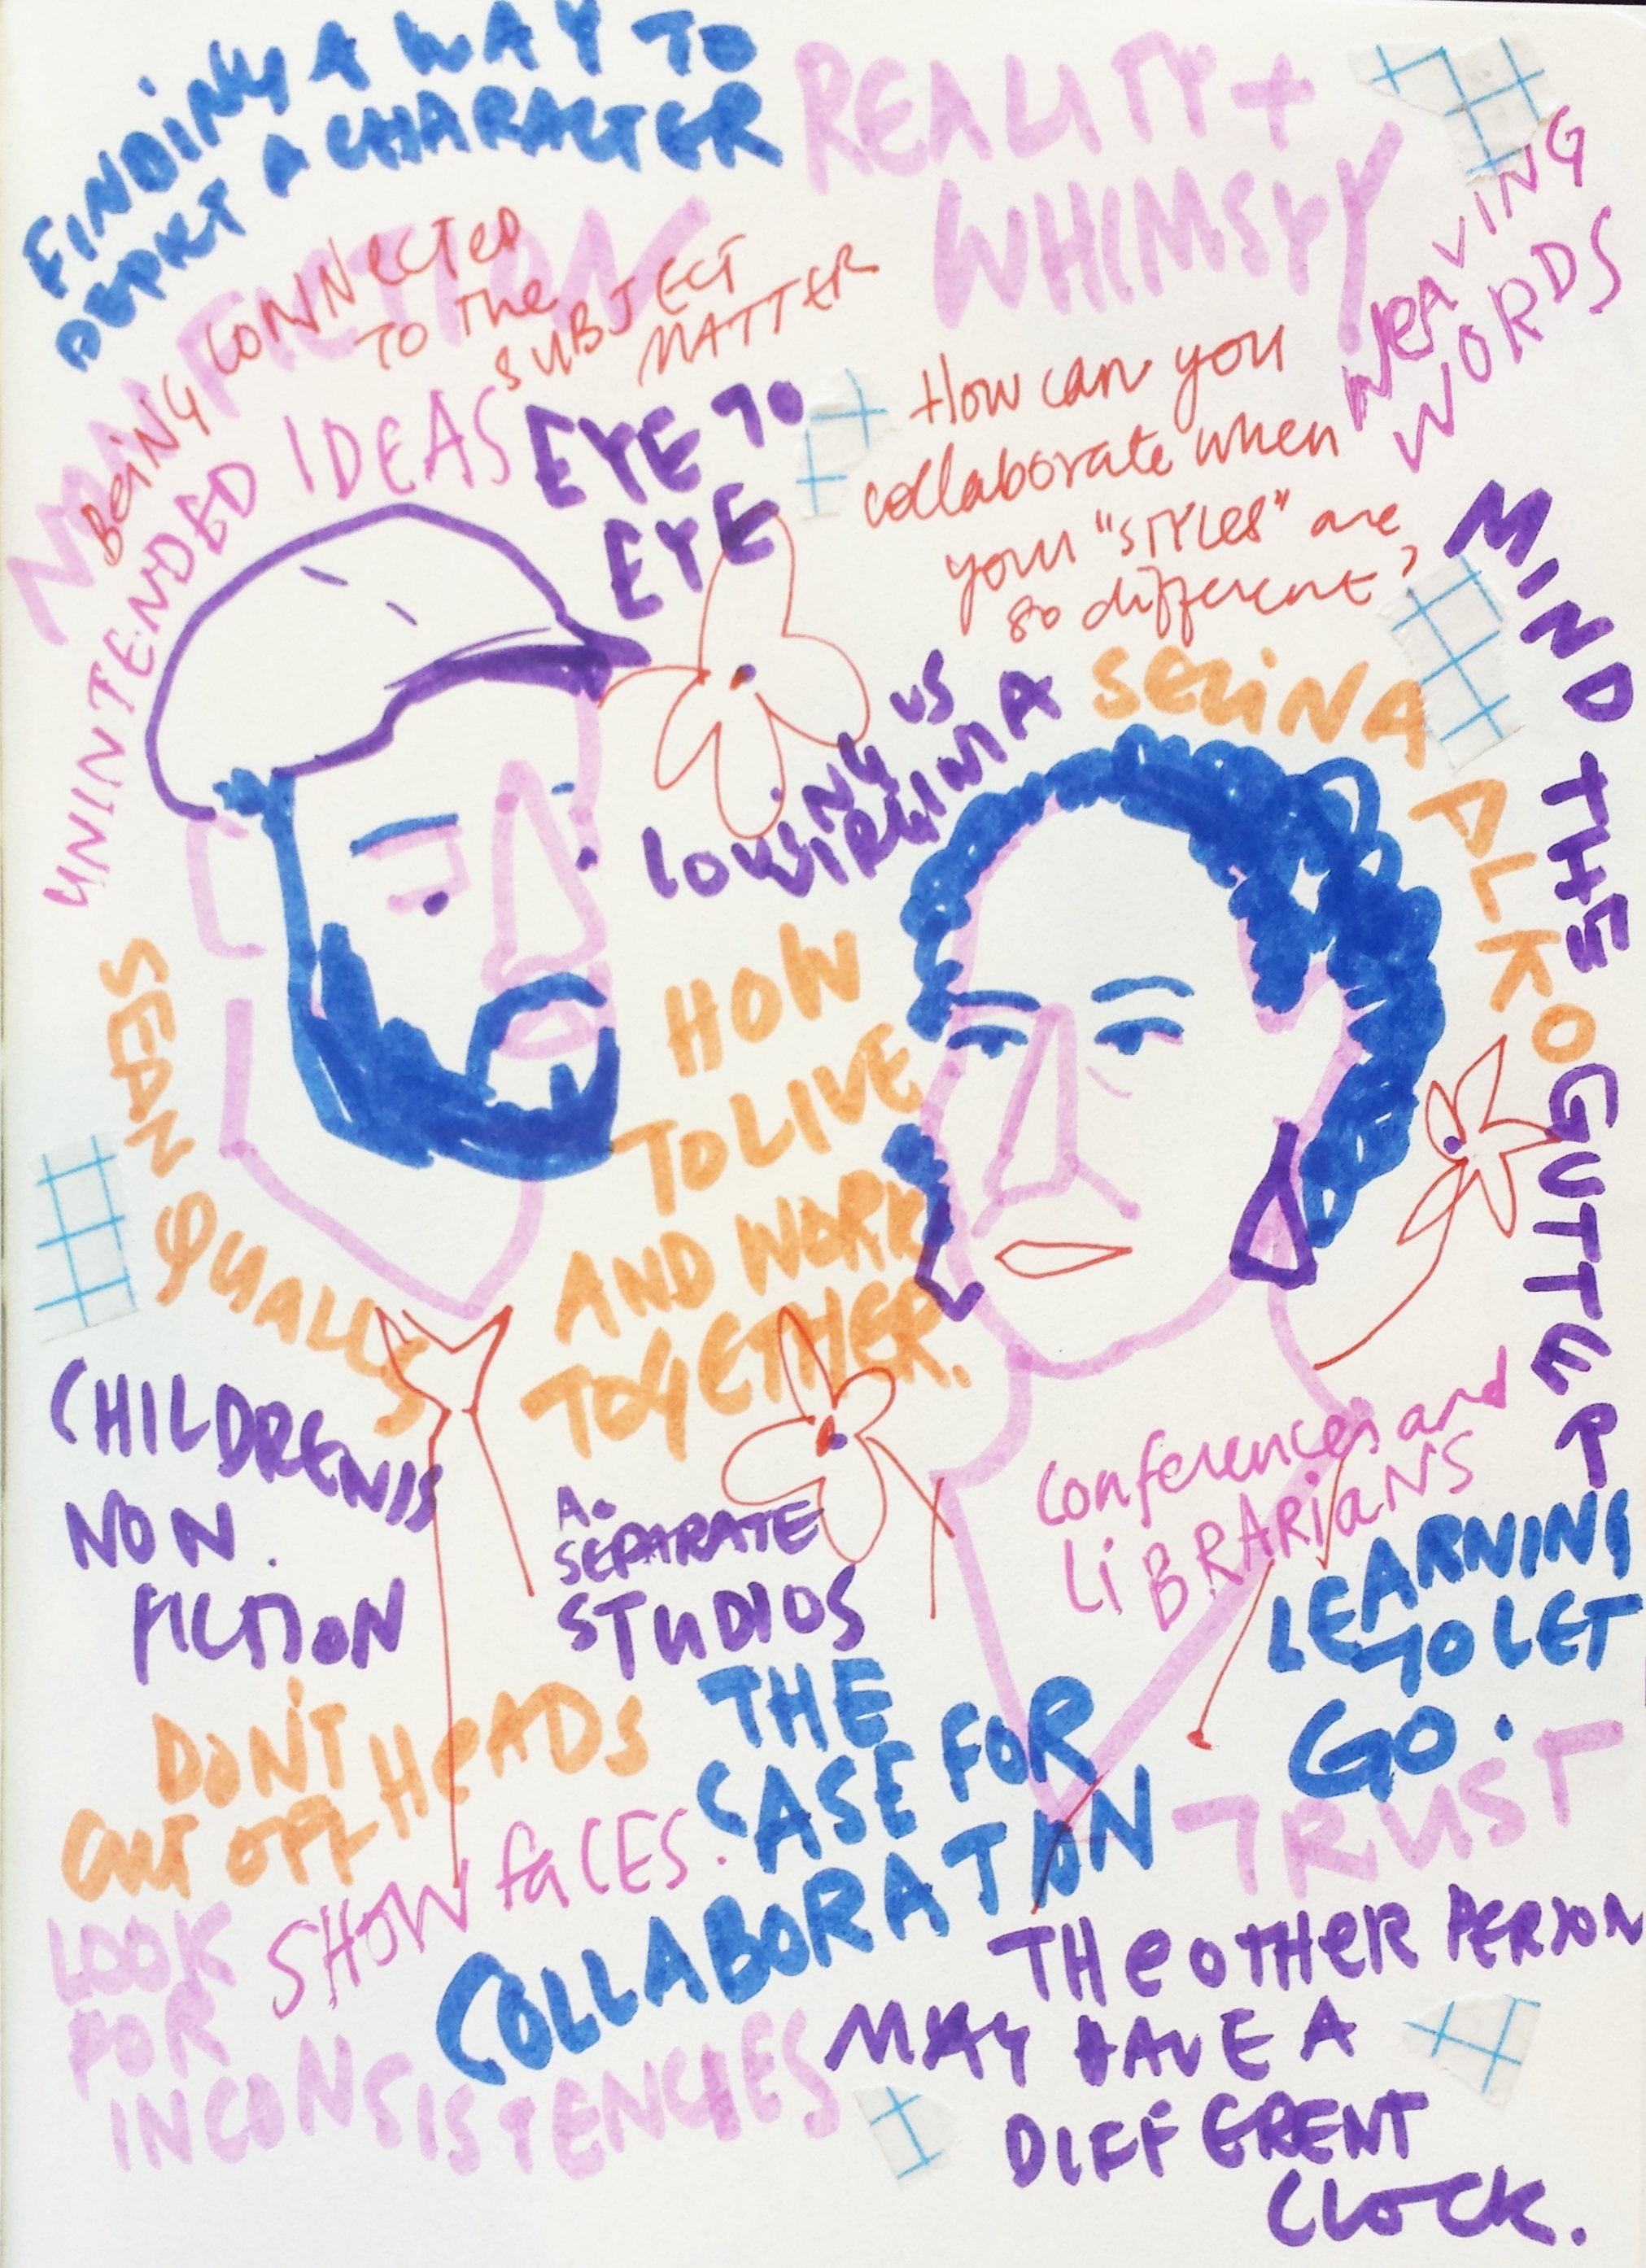 FINDING A WAY TO
DEPICT A CHARACTER
REALITY +
WHIMSYY
WEAVING
WORDS
NON FICTION
BEING CONNECTED
TO THE
SUBJECT
MATTER
UNINTENDED IDEAS
EYE TO
EYE
How can you
collaborate when
your "STYLES" are
so different?
MIND THE GUTTER
LOVING US
VIRGINIA
SELINA ALKO
SEAN QUALLS
HOW
TO LIVE
AND WORK
TOGETHER.
CHILDREN'S
NON.
FICTION
A.
SEPARATE
STUDIOS
Conferences and
LIBRARIANS
LEARNING
TO LET
GO.
DON'T
CUT OFF HEADS
SHOW faCES.
THE
CASE FOR
COLLABORATION
TRUST
LOOK
FOR
INCONSISTENCIES
THE OTHER PERSON
MAY HAVE A
DIFFERENT
CLOCK.